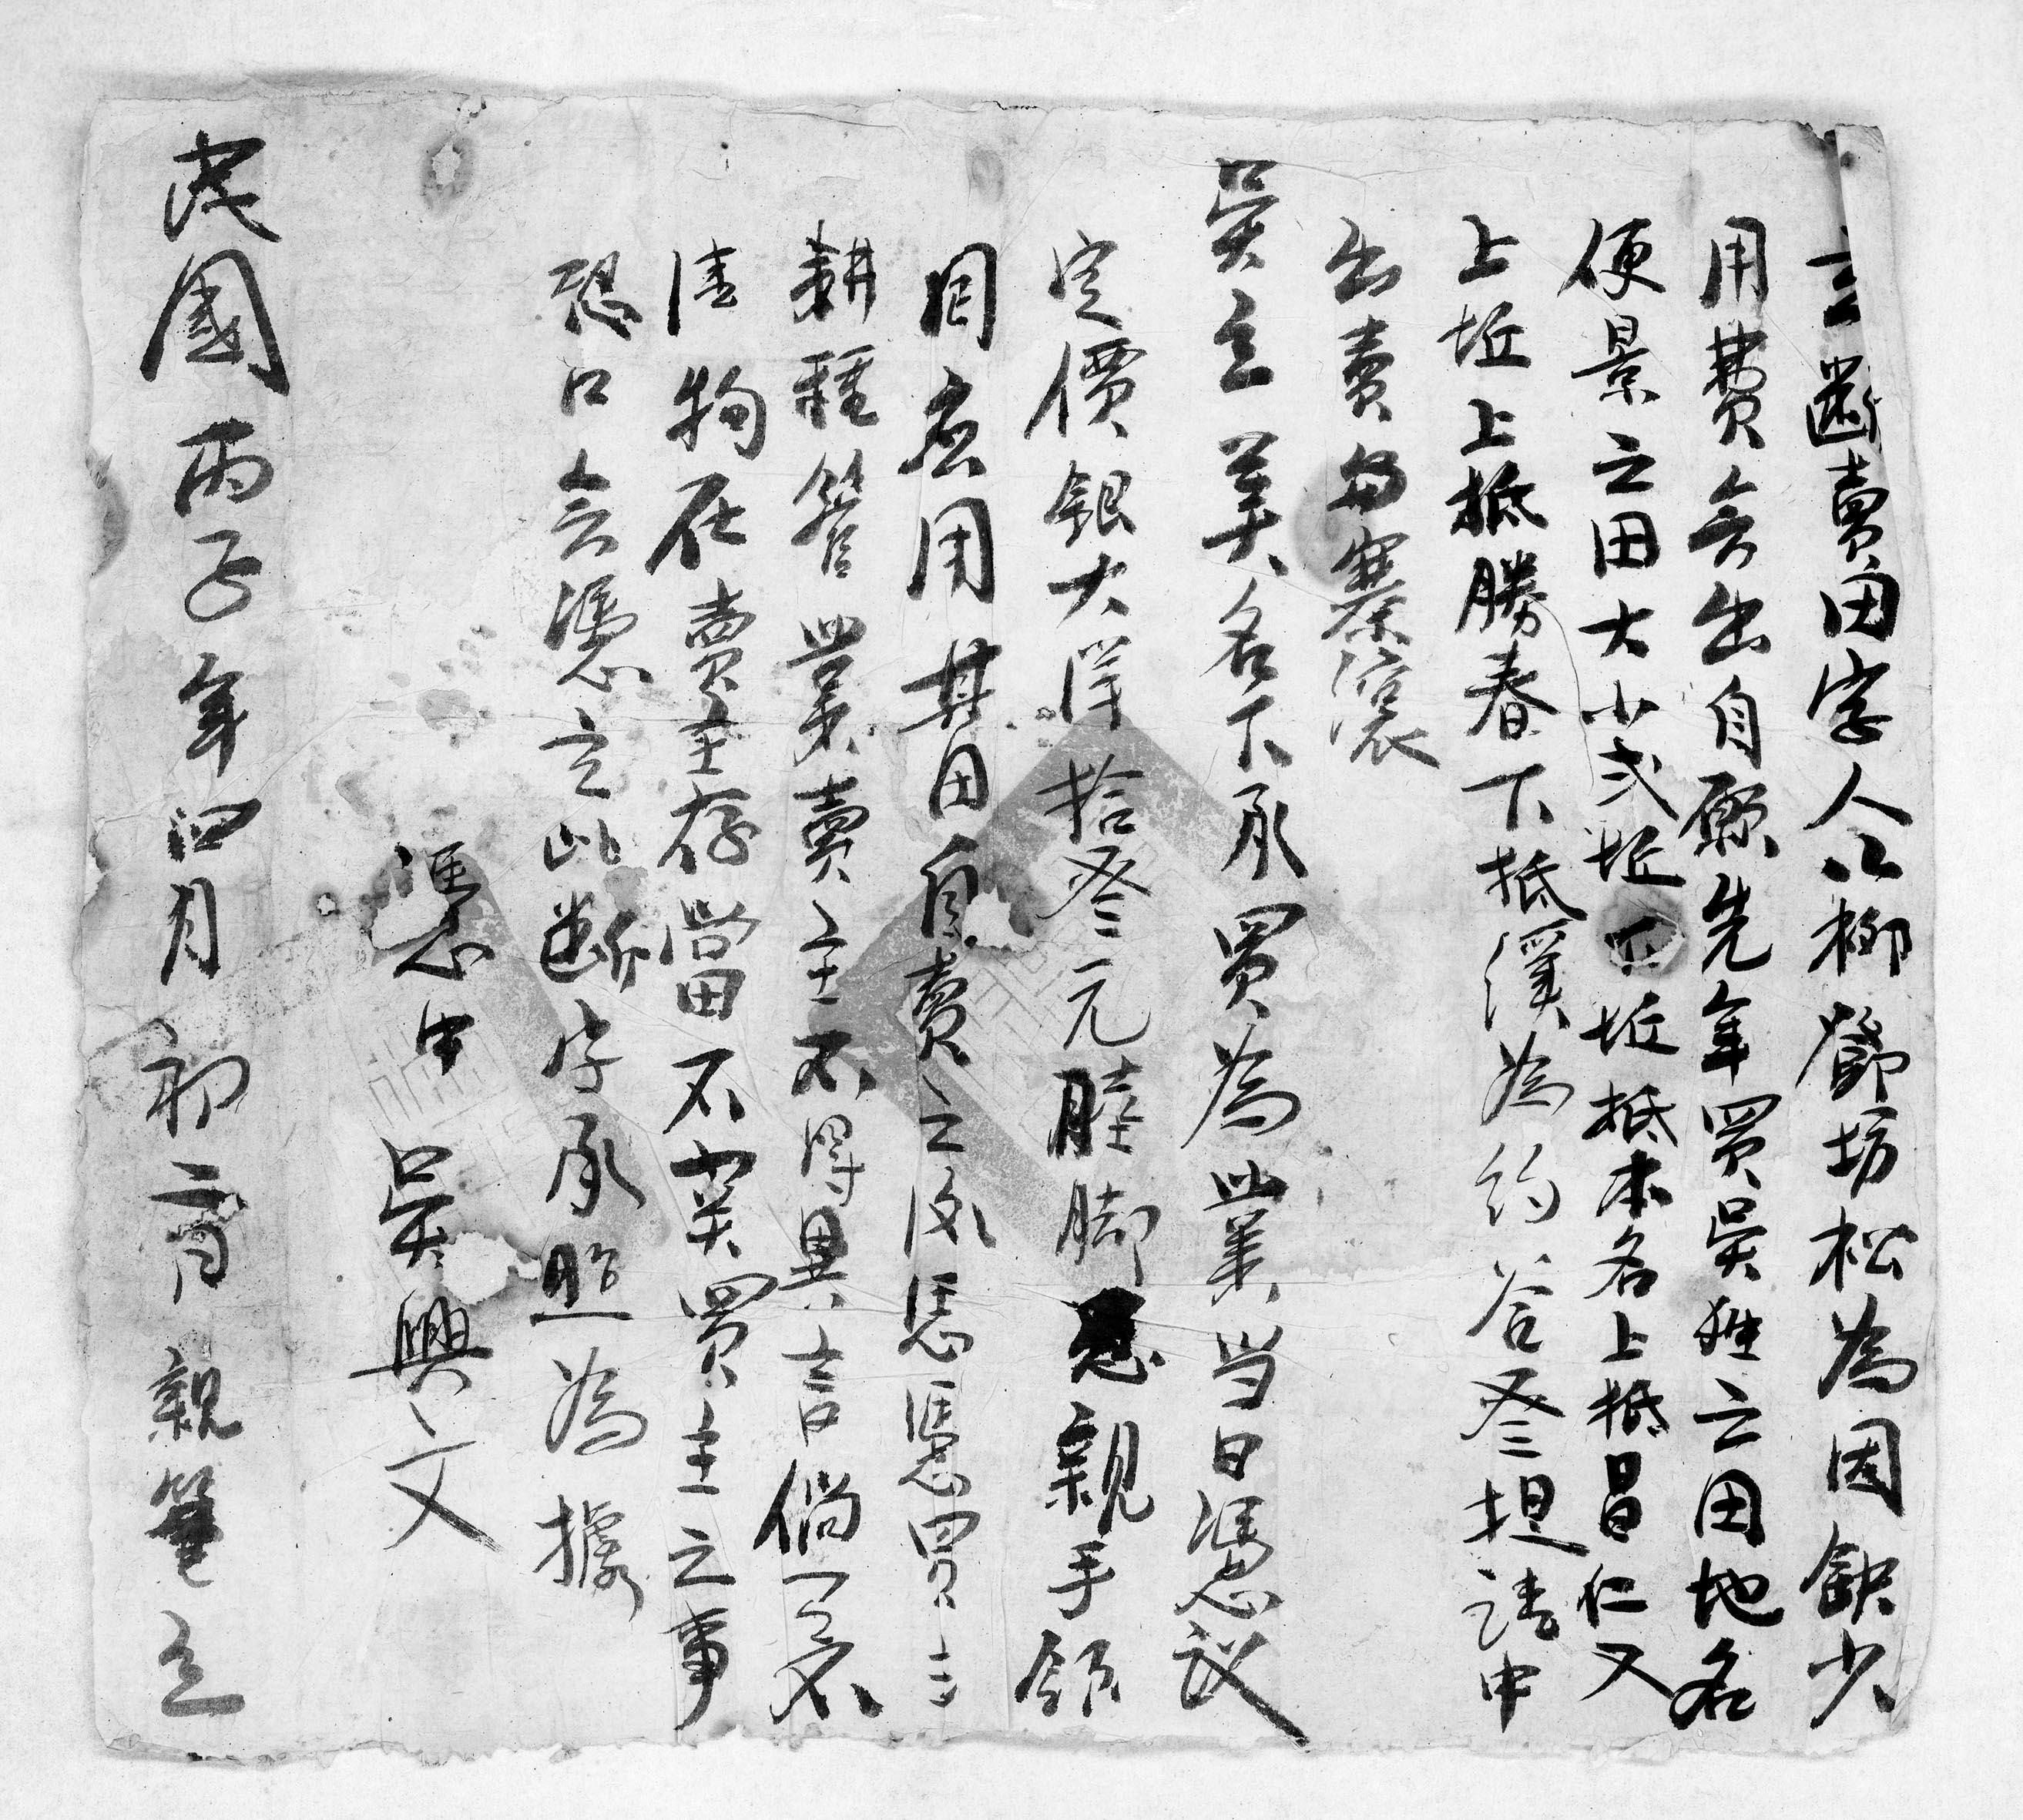 立斷賣田字人江柳鄧坊松為因缺少
用費無出自願先年買吳姓之田地名
便景之田大小弍坵下坵抵本名上抵昌仁又
上坵上抵勝春下抵溪為約谷叁担請中
出賣寨滾
吳主美名下承買為業当日憑议
定價銀大洋拾叁元睦脚親手領
回應用其田自賣之後恁憑買主
耕種管業賣主不得異言倘不
清物在賣主存當不関買主之事
恐口無憑立此斷字承照為據
憑中吳興文
民國丙子年四月初二日親筆立